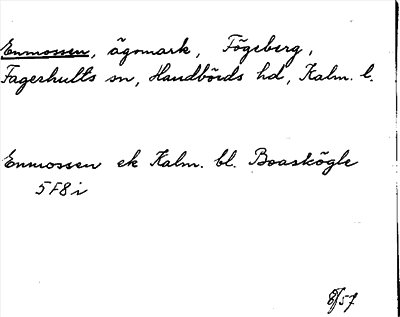 Enmossen, ägomark, Fögeberg,
Fagerhults sn, Handbörds hd, Kalm. l.
Enmossen ek Kalm. bl. Boaskögle
5F8i
8/57